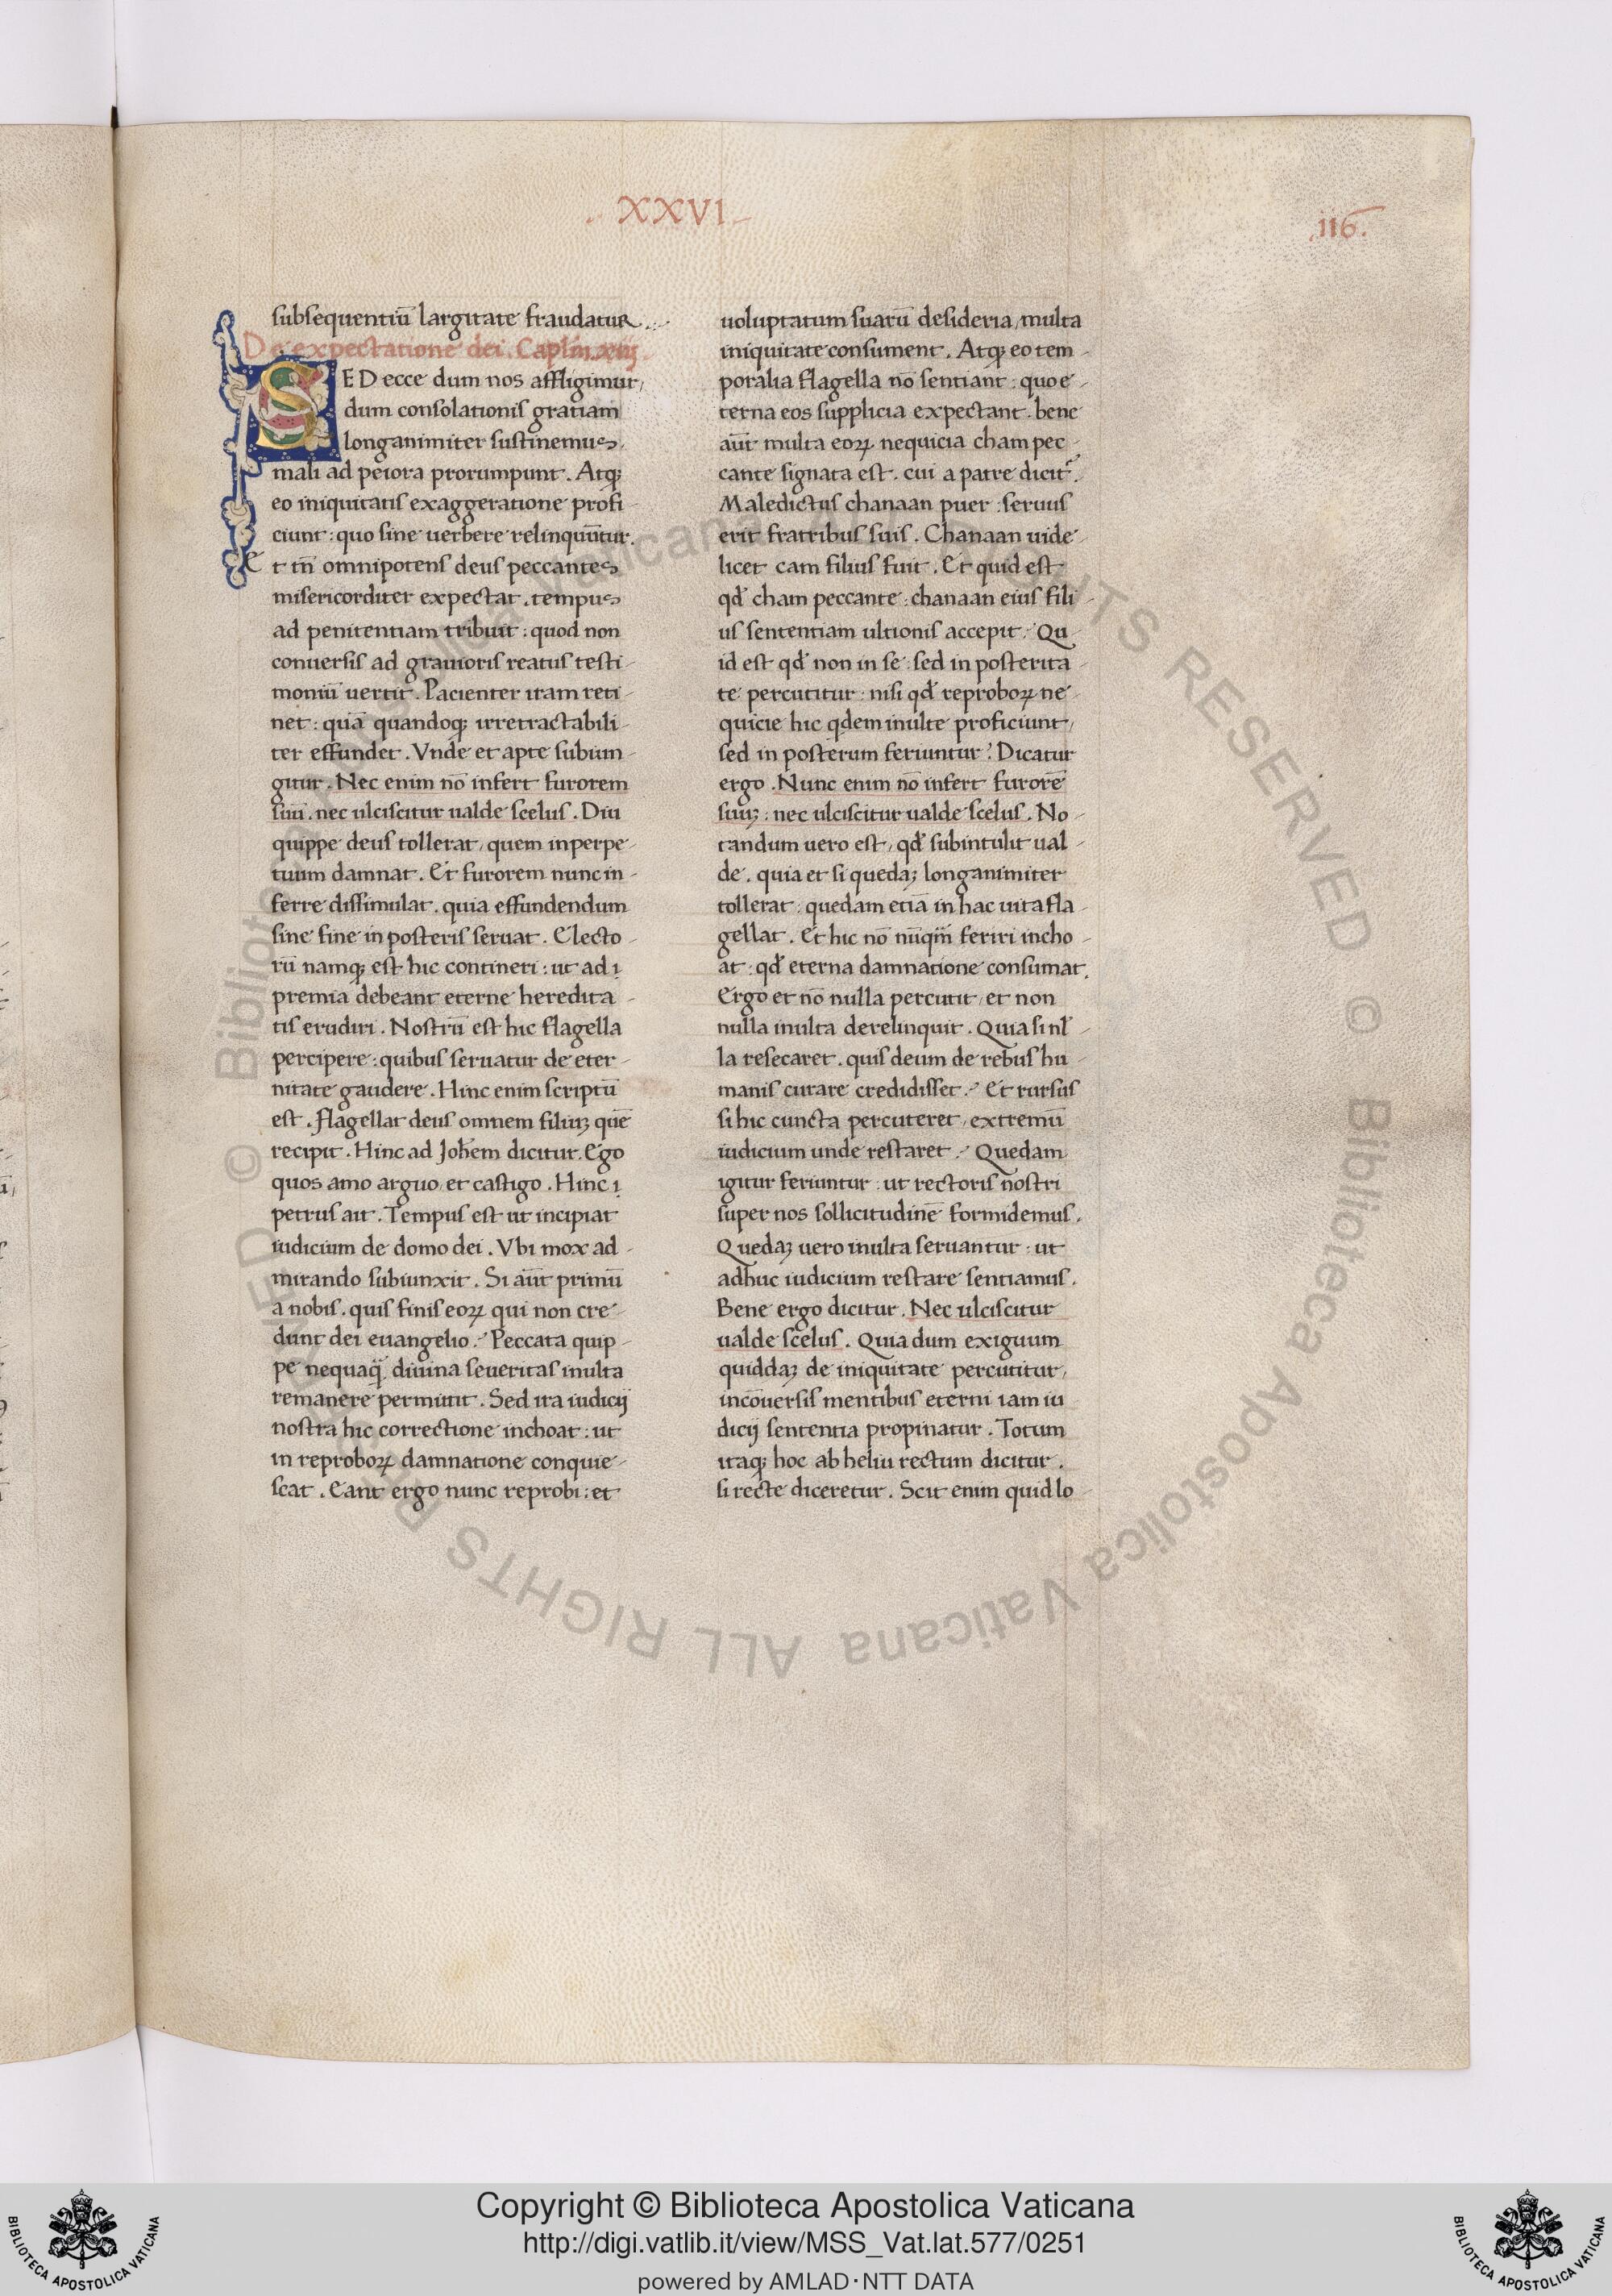 . XXVI .
116.
subsequentiū largitate fraudatur .
De expectatione dei . Caplm̄ . xiij .
SED ecce dum nos affligimur,
dum consolationis gratiam
longanimiter sustinemus,
mali ad peiora prorumpunt . Atq;
eo iniquitatis exaggeratione profi-
ciunt : quo sine uerbere relinquūtur.
Et tn̄ omnipotens deus peccantes
misericorditer expectat . tempus
ad penitentiam tribuit : quod non
conuersis ad grauioris reatus testi-
moniū uertit . Pacienter iram reti-
net : quā quandoq; irretractabili-
ter effundet . Vnde et apte subiun-
gitur . Nec enim nō infert furorem
suū . nec ulciscitur ualde scelus . Diu
quippe deus tollerat, quem inperpe-
tuum damnat . Et furorem nunc in-
ferre dissimulat . quia effundendum
sine fine in posteris seruat . Electo-
rū namq; est hic conteri : ut ad
premia debeant eterne heredita-
tis erudiri . Nostrū est hic flagella
percipere : quibus seruatur de eter-
nitate gaudere . Hinc enim scriptū
est . flagellat deus omnem filiuꝫ quē
recipit . Hinc ad Joh̄em dicitur . Ego
quos amo arguo, et castigo . Hinc
petrus ait . Tempus est ut incipiat
iudicium de domo dei . Vbi mox ad-
mirando subiunxit . Si aūt primū
a nobis . quis finis eoꝝ qui non cre-
dunt dei euangelio . Peccata quip-
pe nequaq̄ diuina seueritas inulta
remanere permittit . Sed ira iudicij
nostra hic correctione inchoat : ut
in reproboꝝ damnatione conquie-
scat . Eant ergo nunc reprobi : et
uoluptatum suarū desideria, multa
iniquitate consument . Atq; eo tem-
poralia flagella nō sentiant : quo e-
terna eos supplicia expectant . bene
aūt multa eoꝝ nequicia cham pec-
cante signata est . cui a patre dicit᷑ .
Maledictus chanaan puer : seruus
erit fratribus suis . Chanaan uide-
licet cam filius fuit . Et quid est
qd̄ cham peccante : chanaan eius fili-
us sententiam ultionis accepit ? Qu-
id est qd̄ non in se : sed in posterita-
te percutitur : nisi qd̄ reproboꝝ ne-
quicie hic qdem inulte proficiunt,
sed in posterum feriuntur ? Dicatur
ergo . Nunc enim nō infert furorē
suuꝫ : nec ulciscitur ualde scelus . No-
tandum uero est, qd̄ subintulit ual-
de . quia et si quedaꝫ longanimiter
tollerat : quedam etiā in hac uita fla-
gellat . Et hic nō nūqm̄ feriri incho-
at : qd̄ eterna damnatione consumat .
Ergo et nō nulla percutit, et non
nulla inulta derelinquit . Quia si nl̄-
la resecaret . quis deum de rebus hu-
manis curare credidisset ? Et rursus
si hic cuncta percuteret, extremū
iudicium unde restaret ? Quedam
igitur feriuntur : ut rectoris nostri
super nos sollicitudinē formidemus .
Quedaꝫ uero inulta seruantur : ut
adhuc iudicium restare sentiamus .
Bene ergo dicitur . Nec ulciscitur
ualde scelus . Quia dum exiguum
quiddaꝫ de iniquitate percutitur,
incōuersis mentibus eterni iam iu
dicij sententia propinatur . Totum
itaq; hoc ab heliu rectum dicitur .
si recte diceretur . Scit enim quid lo-
© Biblioteca Apostolica Vaticana ALL RIGHTS RESERVED © Biblioteca Apostolica Vaticana ALL RIGHTS RESERVED
Copyright © Biblioteca Apostolica Vaticana
http://digi.vatlib.it/view/MSS_Vat.lat.577/0251
powered by AMLAD·NTT DATA
BIBLIOTECA APOSTOLICA VATICANA
BIBLIOTECA APOSTOLICA VATICANA